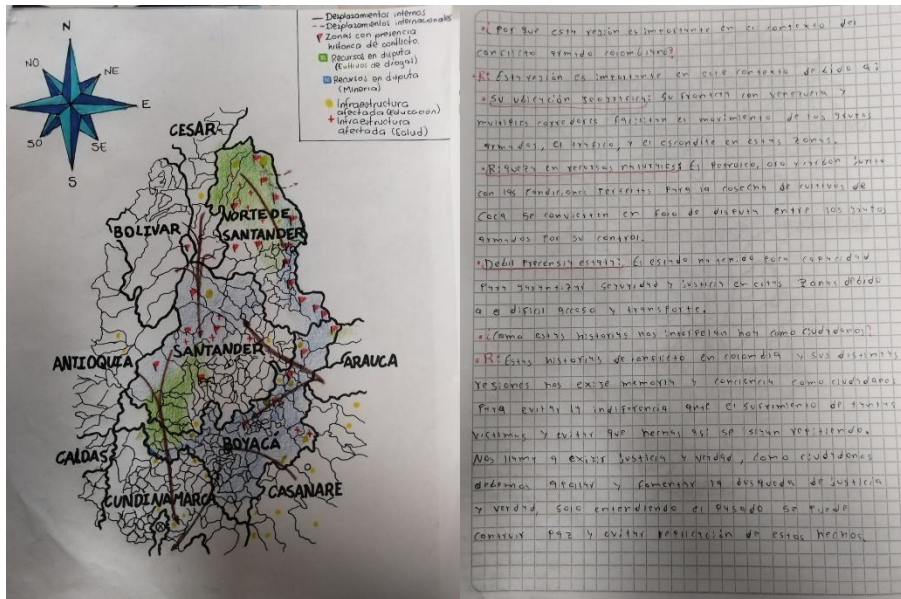 Desplazamientos internos
Desplazamientos internacionales
Zonas con presencia
historica de conflicto.
Recursos en disputa
(Cultivos de drogas)
Recursos en disputa
(Mineria)
Infraestructura
afectada (educación)
Infraestructura
afectada (Salud)
N
NO
NE
E
SO
SE
S
CESAR
BOLIVAR
NORTE DE
SANTANDER
SANTANDER
ANTIOQUIA
ARAUCA
CALDAS
BOYACÁ
CUNDINAMARCA
CASANARE
¿Por que esta región es importante en el contexto del
conflicto armado colombiano?
R: Esta región es importante en este contexto debido a:
Su ubicación geografica: Su frontera con venezuela y
multiples corredores facilitan el movimiento de los grupos
armados, el trafico, y el escondite en estas zonas.
Riqueza en recursos naturales: El Petroleo, oro y carbon junto
con las condiciones perfectas para la cosecha de cultivos de
coca se convierten en foco de disputa entre los grupos
armados por su control.
Debil Precensia estatal: El estado ha tenido poca capacidad
para garantizar seguridad y justicia en estas zonas debido
a el dificil acceso y transporte.
¿Como estas historias nos interpelan hoy como ciudadanos?
R: Estas historias de conflicto en colombia y sus distintas
regiones nos exige memoria y conciencia como ciudadanos
para evitar la indiferencia ante el sufrimiento de tantas
victimas y evitar que hechos asi se sigan repitiendo.
Nos llama a exigir justicia y verdad, como ciudadanos
debemos apoyar y fomentar la busqueda de justicia
y verdad, solo entendiendo el pasado se puede
construir paz y evitar repetición de estos hechos.